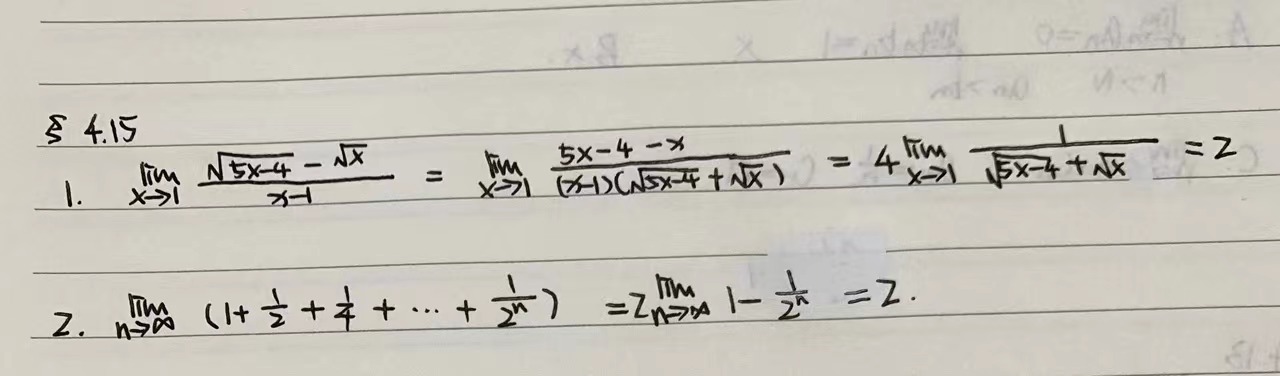 § 4.15
1. lim_{x→1} (√(5x-4) - √x)/(x-1) = lim_{x→1} (5x-4-x)/((x-1)(√(5x-4) + √x)) = 4 lim_{x→1} 1/(√(5x-4) + √x) = 2
2. lim_{n→∞} (1 + 1/2 + 1/4 + ··· + 1/2^n) = 2 lim_{n→∞} 1 - 1/2^n = 2.